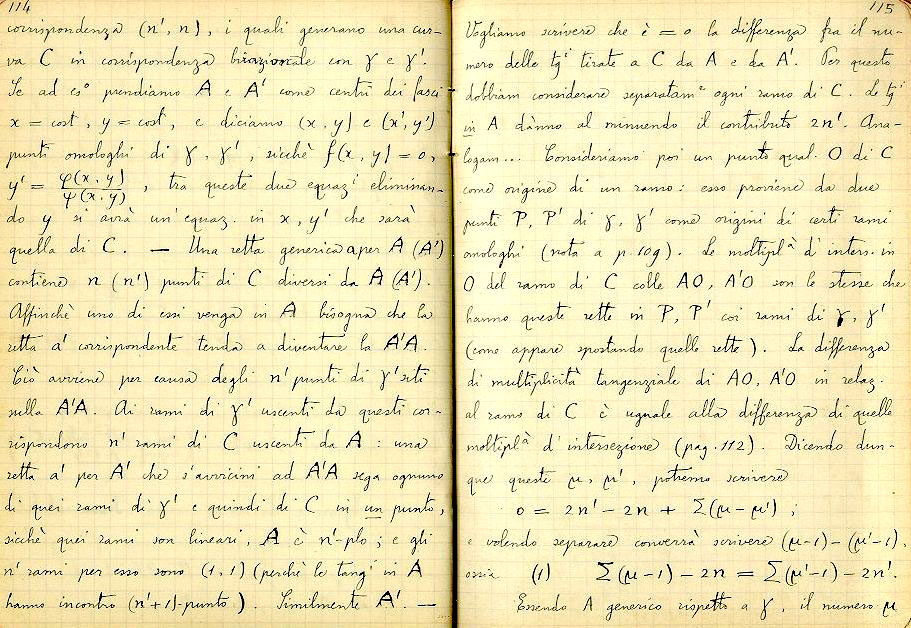 114
corrispondenza (n', n), i quali generano una cur-
va C in corrispondenza birazionale con γ e γ'.
Se ad es° prendiamo A e A' come centri dei fasci
x = cost, y = cost, e diciamo (x, y) e (x', y')
punti omologhi di γ, γ', sicchè f(x, y) = 0,
y' = φ(x, y)/ψ(x, y), tra queste due equaz^i eliminan-
do y si avrà un'equaz. in x, y' che sarà
quella di C. — Una retta generica a per A (A')
contiene n (n') punti di C diversi da A (A').
Affinchè uno di essi venga in A bisogna che la
retta a' corrispondente tenda a diventare la A'A.
Ciò avviene per causa degli n' punti di γ' siti
sulla A'A. Ai rami di γ' uscenti da questi cor-
rispondono n' rami di C uscenti da A : una
retta a' per A' che s'avvicini ad A'A sega ognuno
di quei rami di γ' e quindi di C in un punto,
sicchè quei rami son lineari, A è n'-plo ; e gli
n' rami per esso sono (1, 1) (perchè le tang^i in A
hanno incontro (n'+1)-punto). Similmente A'. —
115
Vogliamo scrivere che è = 0 la differenza fra il nu-
mero delle tg^i tirate a C da A e da A'. Per questo
dobbiam considerare separatam^e ogni ramo di C. Le tg^i
in A dànno al minuendo il contributo 2n'. Ana-
logam... Consideriamo poi un punto qual. O di C
come origine di un ramo : esso proviene da due
punti P, P' di γ, γ' come origini di certi rami
omologhi (nota a p. 109). Le moltipl^à d'inters. in
O del ramo di C colle AO, A'O son le stesse che
hanno queste rette in P, P' coi rami di γ, γ'
(come appare spostando quelle rette). La differenza
di multiplicità tangenziale di AO, A'O in relaz.
al ramo di C è uguale alla differenza di quelle
moltipl^à d'intersezione (pag. 112). Dicendo dun-
que queste μ, μ', potremo scrivere
0 = 2n' - 2n + Σ(μ - μ') ;
e volendo separare converrà scrivere (μ-1) - (μ'-1),
ossia (1) Σ(μ-1) - 2n = Σ(μ'-1) - 2n'.
Essendo A generico rispetto a γ, il numero μ